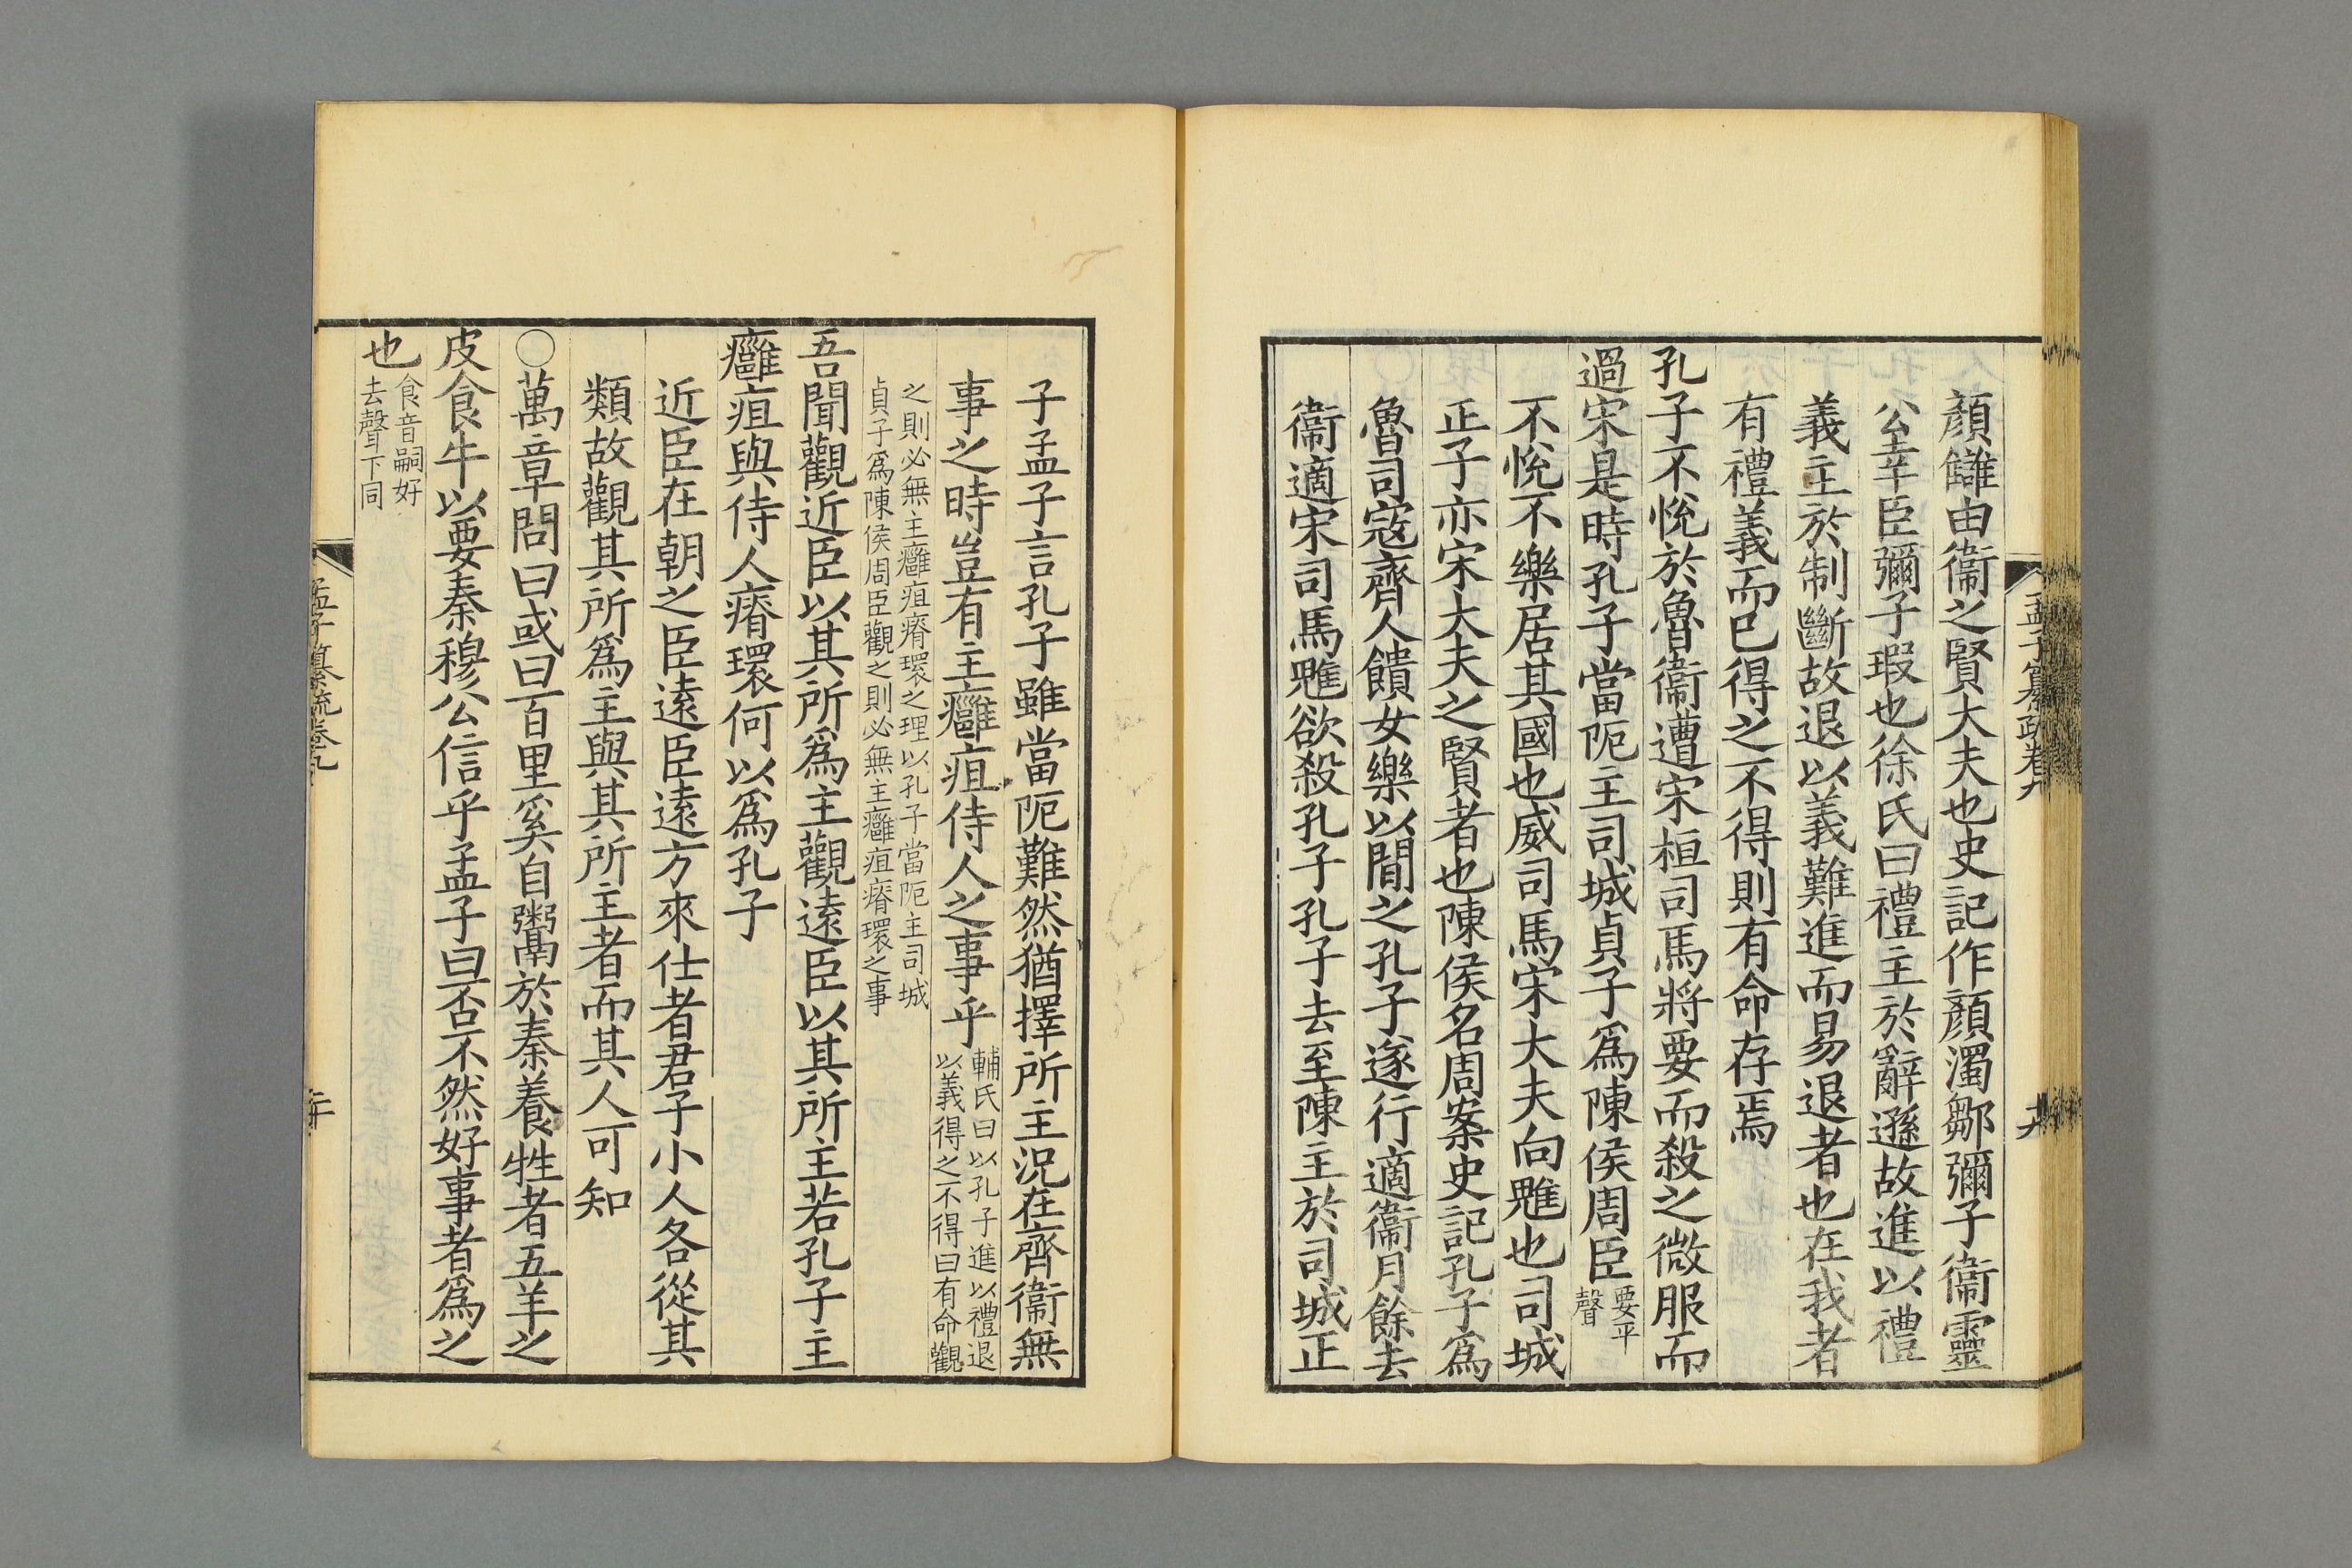 顏讎由衞之賢大夫也史記作顏濁鄒彌子衞靈
公幸臣彌子瑕也徐氏曰禮主於辭遜故進以禮
義主於制斷故退以義難進而易退者也在我者
有禮義而已得之不得則有命存焉
孔子不悅於魯衞遭宋桓司馬將要而殺之微服而
過宋是時孔子當阨主司城貞子爲陳侯周臣
要平
聲
不悅不樂居其國也威司馬宋大夫向魋也司城
正子亦宋大夫之賢者也陳侯名周案史記孔子爲
魯司寇齊人饋女樂以閒之孔子遂行適衞月餘去
衞適宋司馬魋欲殺孔子孔子去至陳主於司城正
子孟子言孔子雖當阨難然猶擇所主況在齊衞無
事之時豈有主癰疽侍人之事乎
輔氏曰以孔子進以禮退
以義得之不得曰有命觀
之則必無主癰疽瘠環之理以孔子當阨主司城
貞子爲陳侯周臣觀之則必無主癰疽瘠環之事
吾聞觀近臣以其所爲主觀遠臣以其所主若孔子主
癰疽與侍人瘠環何以爲孔子
近臣在朝之臣遠臣遠方來仕者君子小人各從其
類故觀其所爲主與其所主者而其人可知
〇萬章問曰或曰百里奚自鬻於秦養牲者五羊之
皮食牛以要秦穆公信乎孟子曰否不然好事者爲之
也
食音嗣好
去聲下同
孟子纂疏卷九
二十